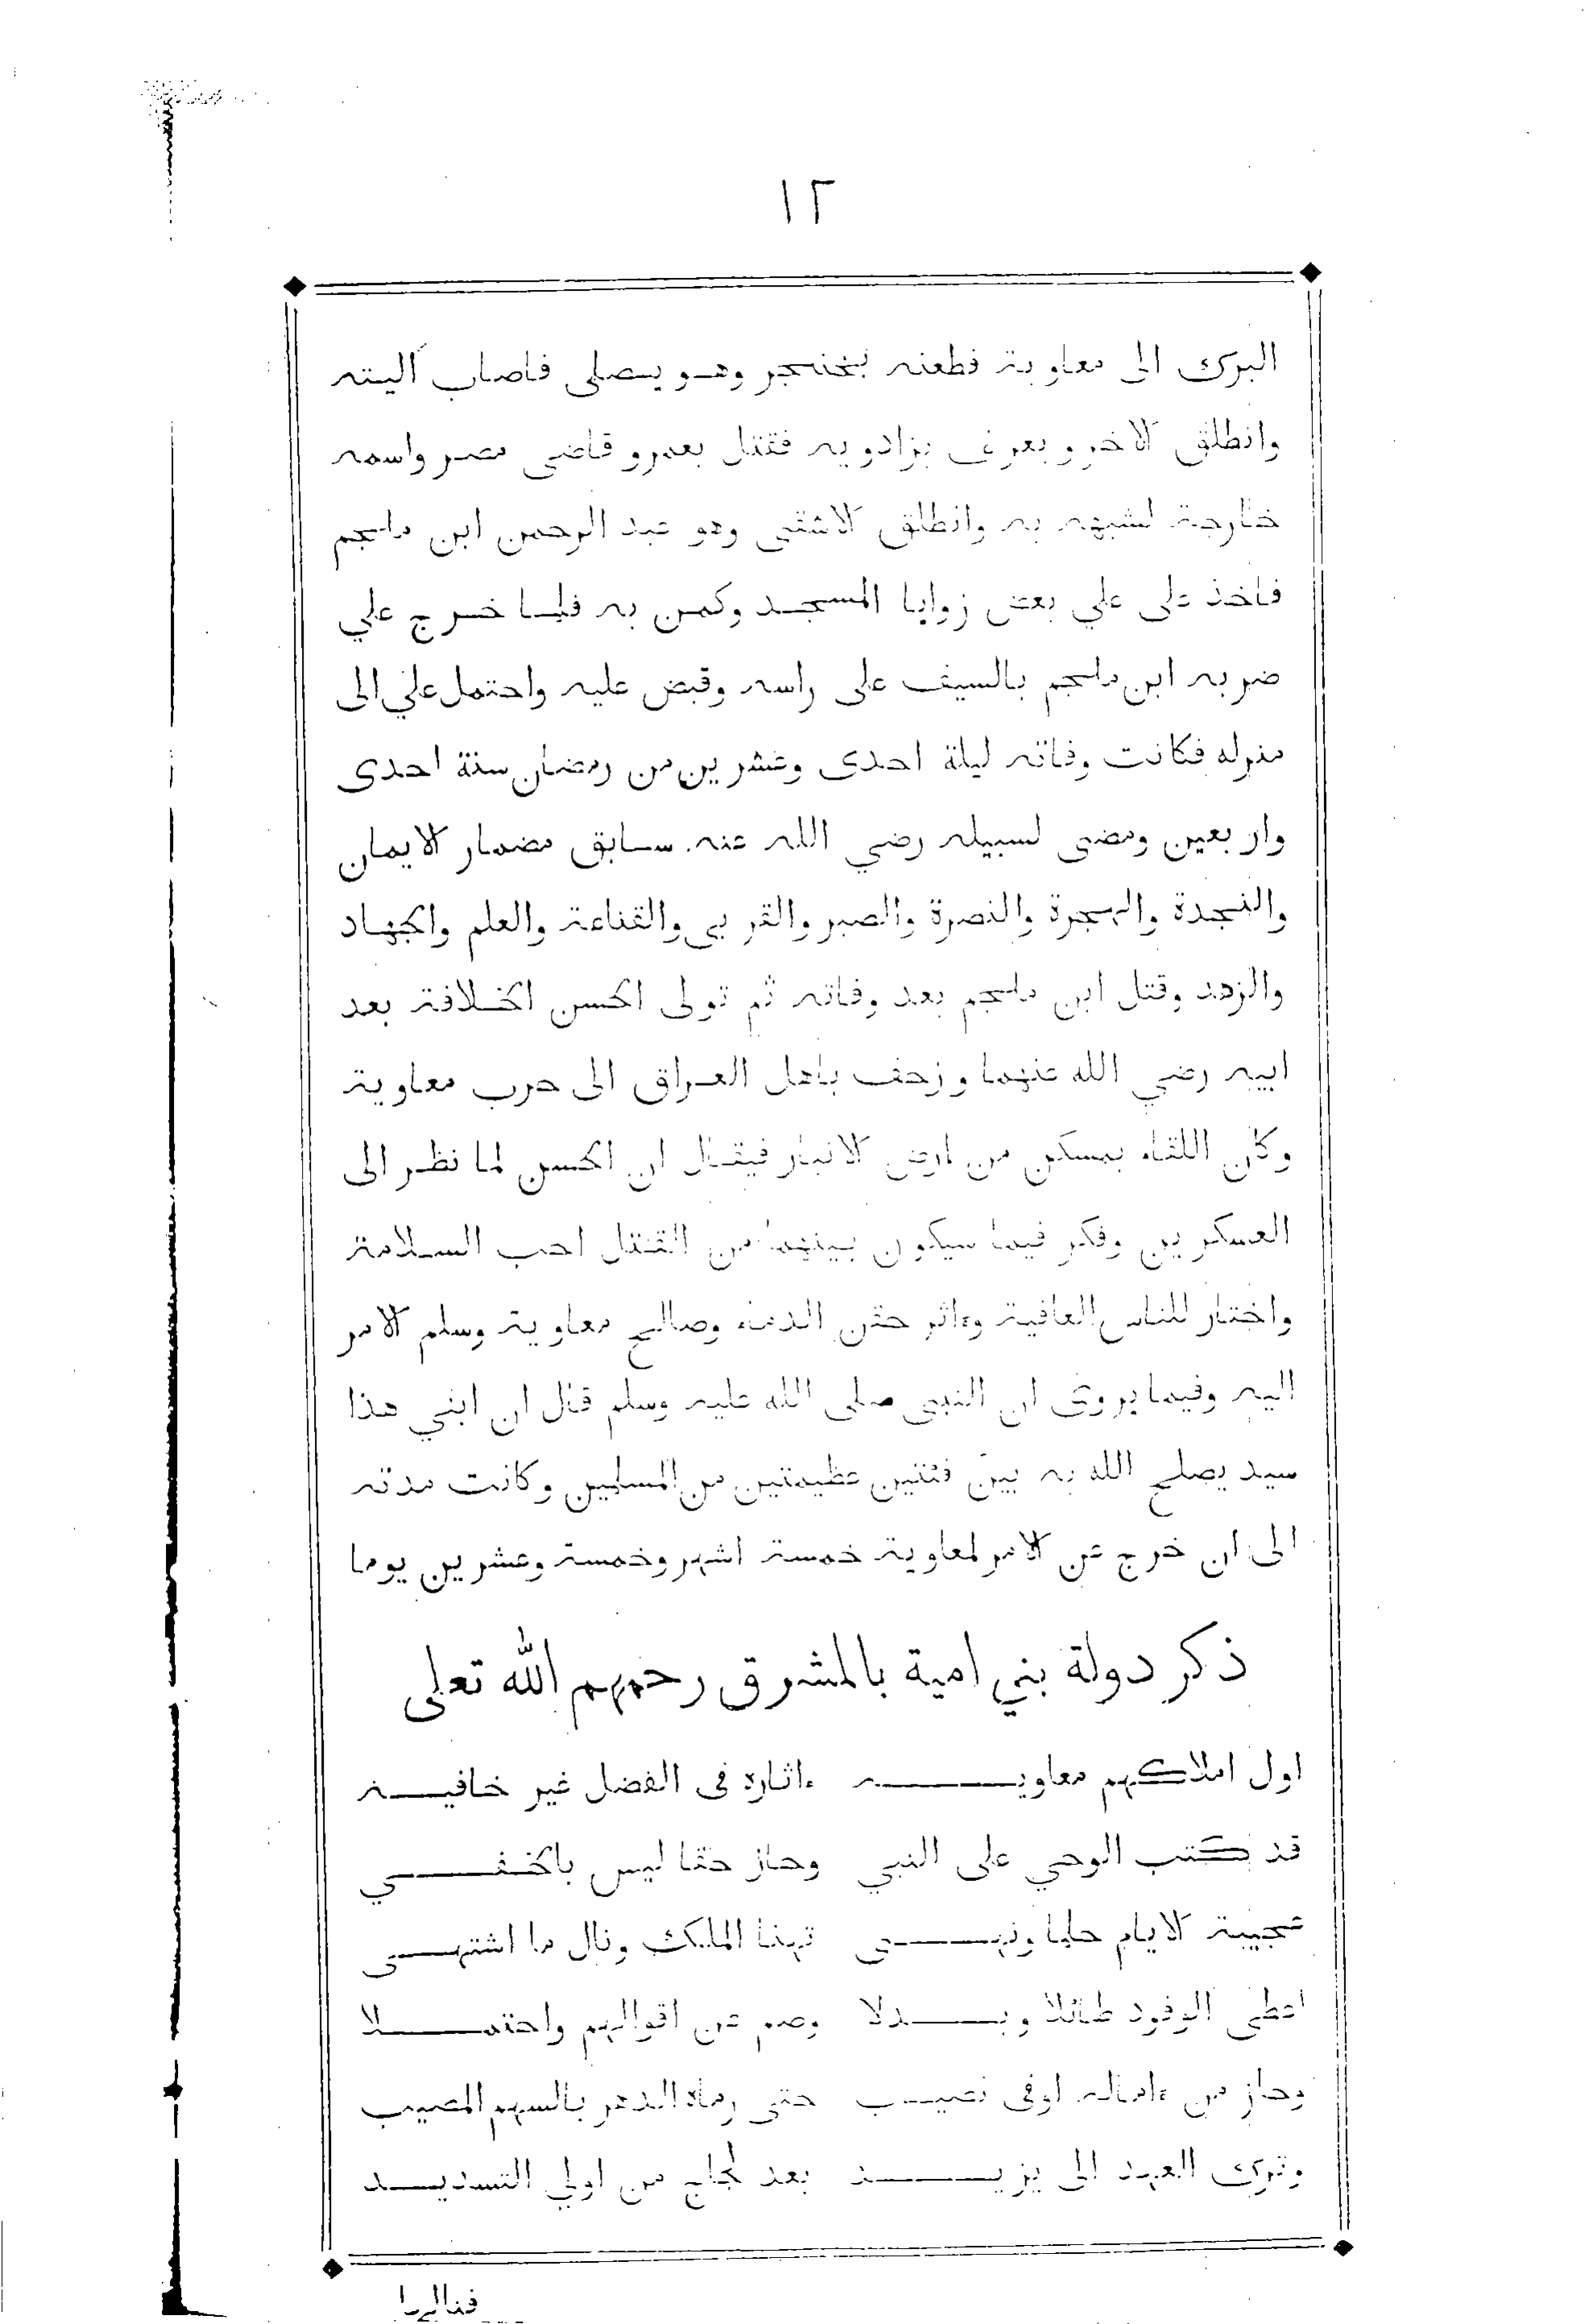 ١٢
البرك الى معاوية فطعنه بخنجر وهو يصلى فاصاب اليته
وانطلق الاخر ويعرف بزادويه فقتل بعمرو قاضى مصر واسمه
خارجة لشبهه به وانطلق الاشقى وهو عبد الرحمن ابن ملجم
فاخذ على علي بعض زوايا المسجد وكمن به فلما خرج علي
ضربه ابن ملجم بالسيف على راسه وقبض عليه واحتمل علي الى
منزله فكانت وفاته ليلة احدى وعشرين من رمضان سنة احدى
واربعين ومضى لسبيله رضي الله عنه سابق مضمار الايمان
والنجدة والهجرة والنصرة والصبر والقربى والقناعة والعلم والجهاد
والزهد وقتل ابن ملجم بعد وفاته ثم تولى الحسن الخلافة بعد
ابيه رضي الله عنهما وزحف باهل العراق الى حرب معاوية
وكان اللقاء بمسكن من ارض الانبار فيقال ان الحسن لما نظر الى
العسكرين وفكر فيما سيكون بينهما من القتل احب السلامة
واختار للناس العافية وءاثر حقن الدماء وصالح معاوية وسلم الامر
اليه وفيما يروى ان النبى صلى الله عليه وسلم قال ان ابني هذا
سيد يصلح الله به بين فئتين عظيمتين من المسلمين وكانت مدته
الى ان خرج عن الامر لمعاوية خمسة اشهر وخمسة وعشرين يوما
ذكر دولة بني امية بالمشرق رحمهم الله تعلى
اول املاكهم معاويه ءاثاره فى الفضل غير خافيه
قد كتب الوحي على النبي وحاز حقا ليس بالخفي
عجيبة الايام حلما ونهى تهنا الملك ونال ما اشتهى
اعطى الوفود طائلا وبدلا وصم عن اقوالهم واحتملا
وحاز من ءاماله اوفى نصيب حتى رماه الدهر بالسهم المصيب
وترك العهد الى يزيد بعد لجاج من اولي التسديد